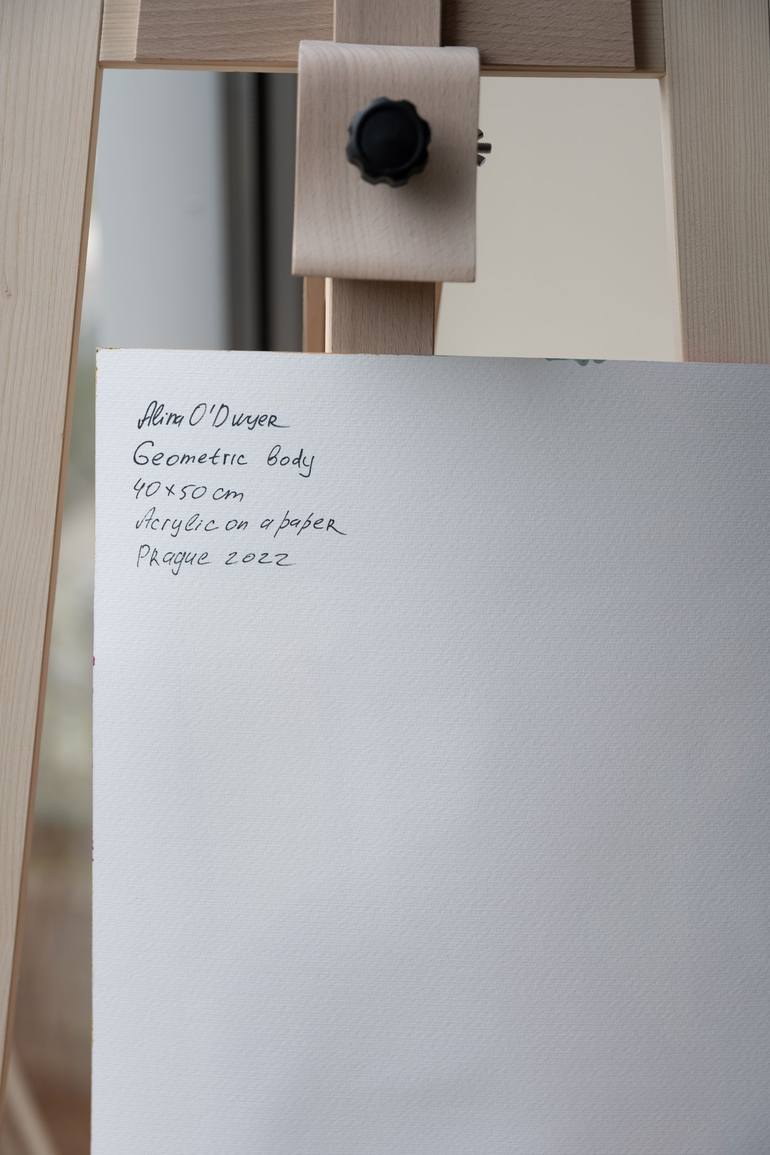 Alina O'Dwyer
Geometric body
40x50 cm
Acrylic on a paper
Prague 2022